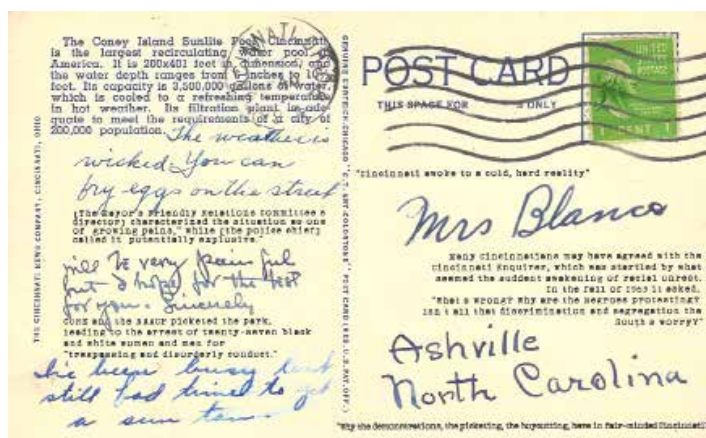 The Coney Island Sunlite Pool, Cincinnati
is the largest recirculating water pool in
America. It is 200x401 feet in dimension, and
the water depth ranges from inches to 10
feet. Its capacity is 3,500,000 gallons of water,
which is cooled to a refreshing temperature
in hot weather. Its filtration plant is ade-
quate to meet the requirements of a city of
200,000 population.
The weather is
wicked You can
fry eggs on the street
(The Mayor's Friendly Relations Committee's
director) characterized the situation as one
of "growing pains," while (the police chief)
called it "potentially explosive."
will be very painful
but I hope for the best
for you. Sincerely
CORE and the NAACP picketed the park,
leading to the arrest of twenty-seven black
and white women and men for
"trespassing and disorderly conduct."
I've been busy but
still had time to get
a sun tan
THE CINCINNATI NEWS COMPANY, CINCINNATI, OHIO
GENUINE CURTEICH-CHICAGO "C.T. ART-COLORTONE" POST CARD (REG U.S. PAT. OFF.)
CINNATI
POST CARD
THIS SPACE FOR ONLY
UNITED
STATES
POSTAGE
1 CENT 1
"Cincinnati awoke to a cold, hard reality"
Mrs Blanco
Many Cincinnatians may have agreed with the
Cincinnati Enquirer, which was startled by what
seemed the sudden awakening of racial unrest.
In the fall of 1963 it asked,
"What's wrong? Why are the Negroes protesting?
Isn't all that discrimination and segregation the
South's worry?"
Ashville
North Carolina
"Why the demonstrations, the picketing, the boycotting, here in fair-minded Cincinnati?